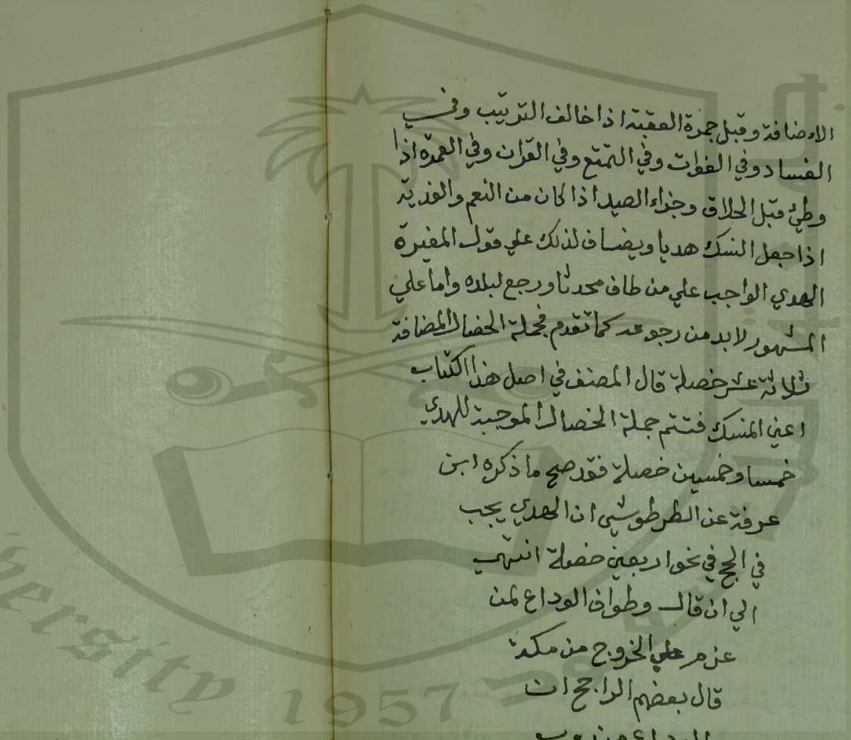 الاضافة وقبل جمرة العقبة اذا خالف الترتيب وفي
الفساد وفي الفوات وفي التمتع وفي القران وفي العمرة اذا
وطئ قبل الحلاق وجزاء الصيد اذا كان من النعم والفدية
اذا جعل النسك هديا ويضاف لذلك علي قول المغيرة
الهدي الواجب علي من طاف محدثا ورجع لبلده واما علي
المشهور لابد من رجوعه كما تقدم فجملة الخصال المضافة
ثلاثة عشر خصلة قال المصنف في اصل هذا الكتاب
اعني المنسك فتتم جملة الخصال الموجبة للهدي
خمسا وخمسين خصلة فقد صح ما ذكره ابن
عرفة عن الطرطوشي ان الهدي يجب
في الحج في نحو اربعين خصلة انتهي
الي ان قال وطواف الوداع لمن
عزم علي الخروج من مكة
قال بعضهم الراجح ان
versity 1957